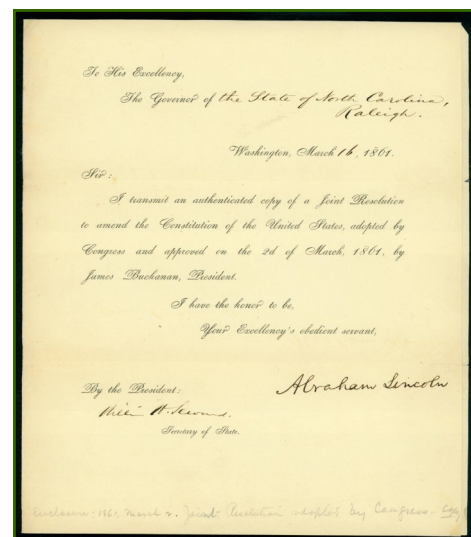 To His Excellency,
The Governor of the State of North Carolina,
Raleigh.
Washington, March 16, 1861.
Sir:
I transmit an authenticated copy of a Joint Resolution
to amend the Constitution of the United States, adopted by
Congress and approved on the 2d of March, 1861, by
James Buchanan, President.
I have the honor to be,
Your Excellency's obedient servant,
Abraham Lincoln
By the President:
William H. Seward.
Secretary of State.
Enclosure: 1861, March 2. Joint Resolution adopted by Congress - Copy